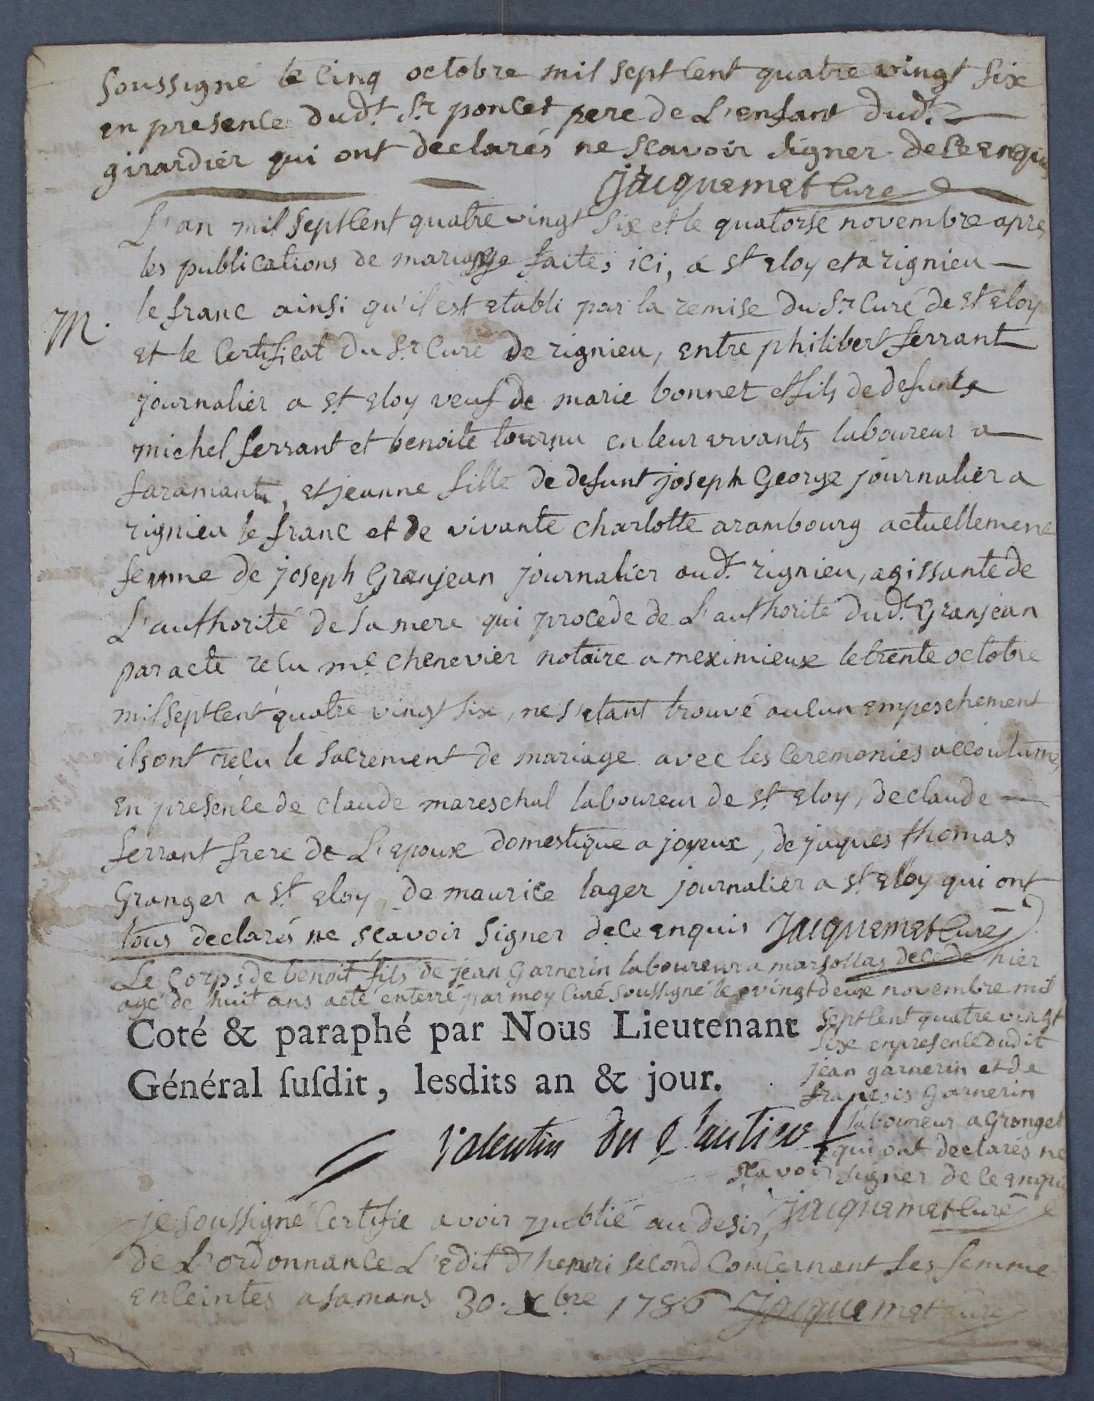 soussigné le cinq octobre mil sept cent quatre vingt six
en presence dud.t S.r poncet pere de L'enfant dud.t
girardier qui ont declarés ne scavoir signer de ce enquis
jacquemet curé
L'an mil sept cent quatre vingt six et le quatorse novembre apres
les publications de mariage faites ici, a s.t eloy et a rignieu
M. le franc ainsi qu'il est etabli par la remise du S.r Curé de s.t eloy
et le certificat du S.r Curé de rignieu, entre philibert ferrant
journalier a s.t eloy veuf de marie bonnet et fils de defunts
michel ferrant et benoite tournu en leur vivants laboureur a
faramant, et jeanne fille de defunt joseph George journalier a
rignieu le franc et de vivante charlotte arambourg actuellement
femme de joseph Granjean journalier aud.t rignieu, agissante de
L'authorité de sa mere qui procede de L'authorité dud.t Granjean
par acte reçu m.e chenevier notaire a meximieux le trente octobre
mil sept cent quatre vingt six, ne s'etant trouvé aucun empeschement
ils ont reçu le sacrement de mariage avec les ceremonies accoutumé
en presence de claude mareschal laboureur de s.t eloy, de claude
ferrant frere de L'epoux domestique a joyeux, de jaques thomas
Granger a s.t eloy, de maurice lager journalier a s.t eloy qui ont
tous declarés ne scavoir signer de ce enquis jacquemet curé
Le corps de benoit fils de jean Garnerin laboureur a marsollas decedé hier
agé de huit ans a eté enterré par moy curé soussigné le vingt deux novembre mil
sept cent quatre vingt
six en presence dudit
jean garnerin et de
francois Garnerin
laboureur a Gronget
qui ont declarés ne
scavoir signer de ce enquis
jacquemet curé
Coté & paraphé par Nous Lieutenant
Général susdit, lesdits an & jour.
Valentin du
je soussigné certifie avoir publié au desir
de L'ordonnance L'edit d'henri second concernant les femme
enceintes a samans 30. Xbre 1786 jacquemet curé